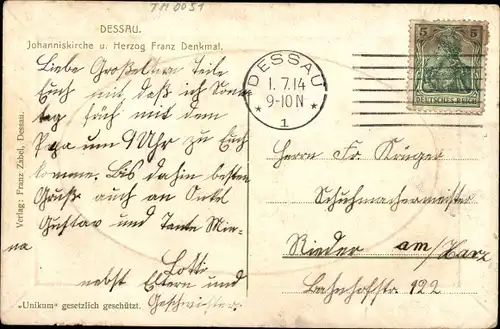 TM 0051
DESSAU.
Johanniskirche u. Herzog Franz Denkmal.
Liebe Großeltern Teile
Euch mit daß ich Sonn
tag früh mit dem
Papa um 9 Uhr zu Euch
komme. Bis dahin besten
Gruß auch an Onkel
Gustav und Tante Min-
na
Lotti
nebst Eltern und
Geschwister.
„Unikum" gesetzlich geschützt.
Verlag: Franz Zabel, Dessau.
DESSAU
1.7.14
9-10 N
* 1 *
5 5
DEUTSCHES REICH
Herrn Fr. Krüger
Schuhmachermeister
Rieder am/Harz
Bahnhofstr. 122